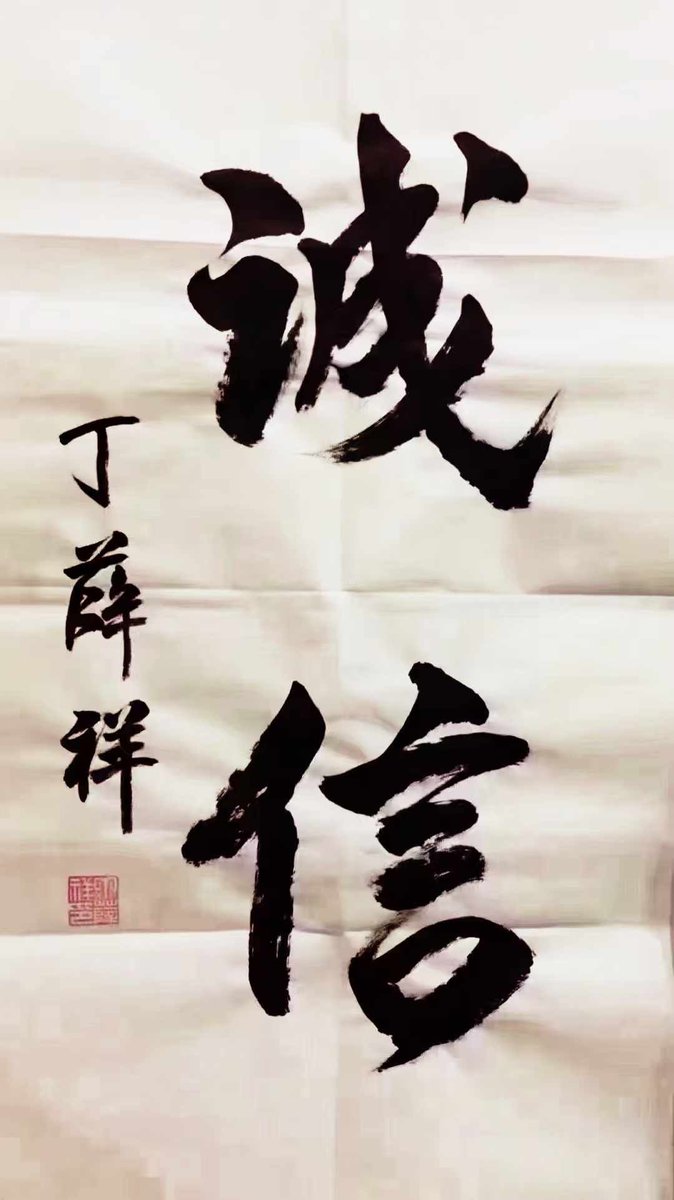 誠信
丁薛祥